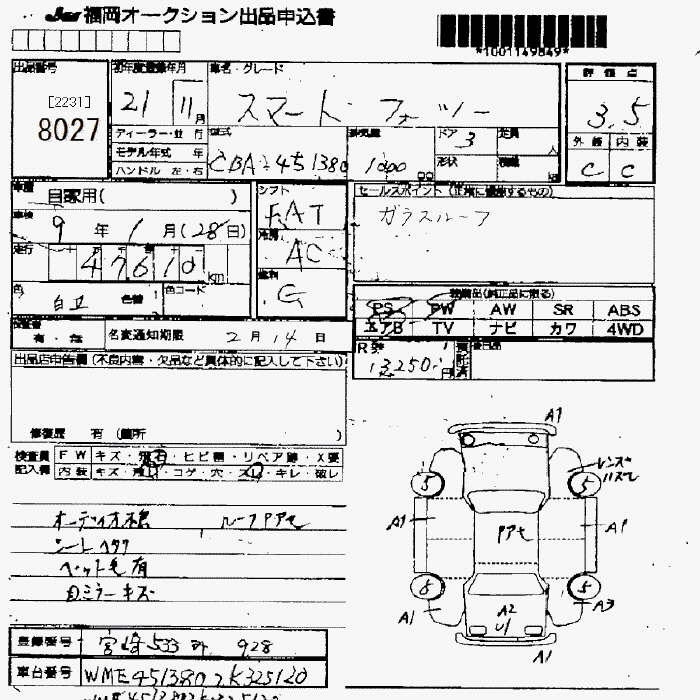 福岡オークション出品申込書
*1001149849*
出品番号
[2231]
8027
初年度登録年月
21 11月
車名・グレード
スマート フォーツー
評価点
3.5
外装 内装
C C
ディーラー・並行
モデル年式 年
ハンドル 左・右
型式
CBA-451380
排気量
1000
ドア
3
形状
定員
人
積載
kg
車歴
自家用( )
車検
9年1月(28日)
走行
47610km
色
白/
色替
色コード
シフト
FAT
冷房
AC
燃料
G
セールスポイント(正常に機能するもの)
ガラスルーフ
装備品(純正品に限る)
PS PW AW SR ABS
エアB TV ナビ カワ 4WD
有・無
名変通知期限 2月14日
R券
13250円
預託済
後日品
出品店申告欄(不良内容・欠品など具体的に記入して下さい)
修復歴 有(箇所 )
検査員
記入欄
FW キズ・飛石・ヒビ割・リペア跡・X要
内装 キズ・汚レ・コゲ・穴・スレ・キレ・破レ
ルーフPアセ
シートヘタリ
ペット毛有
Dミラーキズ
A1
レンズ
ハズレ
5 5
A1 A1
Pアセ
8 5
A1 A3
A2
U1
A1
登録番号
宮崎533 928
車台番号
WME4513802K325120